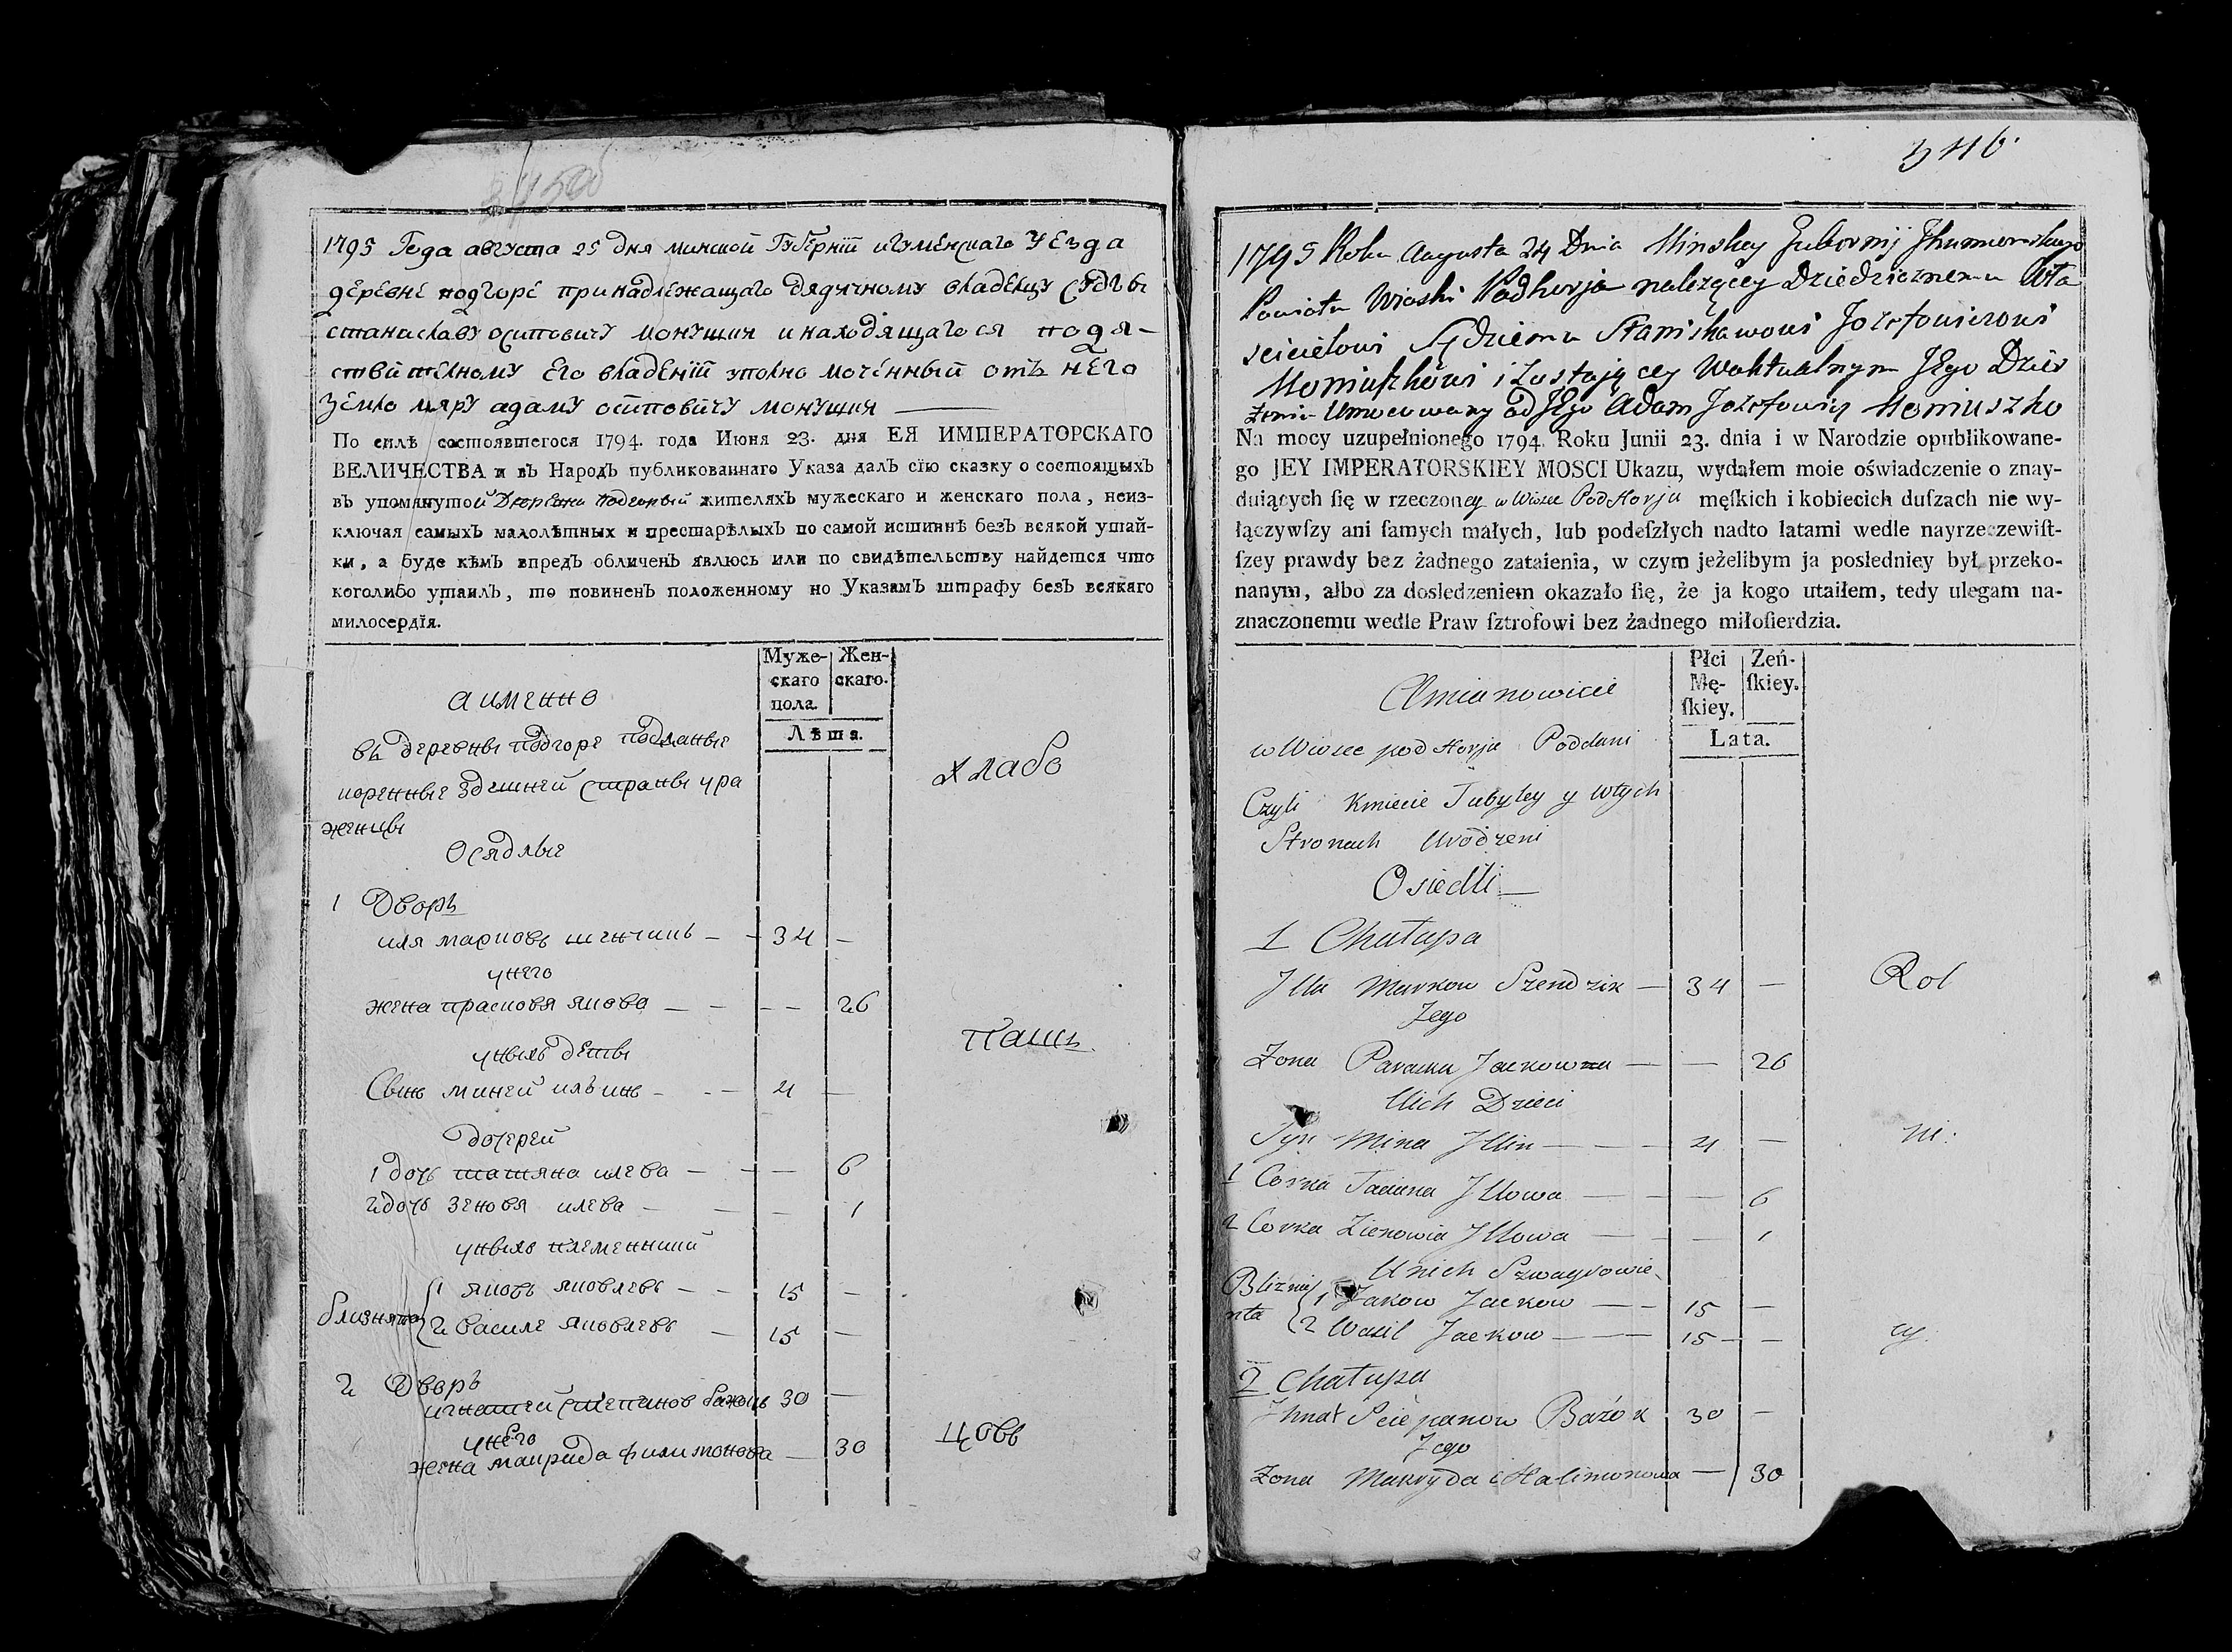 1795 Года августа 25 дня минской Губернїи игуменскаго уезда
деревне подгоре принадлежащаго дядичному владелцу судьѣ
станиславу осиповичу монушки инаходящагося подѣ-
ствителному его владениї уполно моченный отъ него
землемяру адаму осиповичу монушки
По силѣ состоявшегося 1794. года Июня 23. дня ЕЯ ИМПЕРАТОРСКАГО
ВЕЛИЧЕСТВА и въ Народъ публикованнаго Указа далъ сїю сказку о состоящыхъ
въ упомянутой жителяхъ мужескаго и женскаго пола, неиз-
ключая самыхъ малолѣтных и престарѣлыхъ по самой истиннѣ безъ всякой утай-
ки, а буде кѣмъ впредъ обличенъ явлюсь или по свидѣтельству найдется что
коголибо утаилъ, то повиненъ положенному но Указамъ штрафу безъ всякаго
милосердїя.
Муже-
скаго
пола.
Жен-
скаго.
Лѣта.
а имѣнно
въ деревны подгоре подданые
коренные здешней страны ура
женцы
Осядлые
хлабо
1 Дворъ
иля марковъ шенчикъ 34 —
унего
жена прасковя якова — 26
паш
уныхъ деты
Сынъ миней ильинъ 4 —
дочерей
1 дочь татяна илева — 6
2 дочь зеновя илева — 1
уныхъ племенники
близнята { 1 яковъ яковлевъ 15 —
2 василе яковлевъ 15 —
2 Дворъ
игнатей степанов бажокъ 30 —
унего
жена макрида филимонова — 30
цовъ
1795 Roku Augusta 24 Dnia Minskey Gubernij Jhumenskego
Powiatu Wioski Podhorja nalezącey Dziedzicznemu Wła
scicielowi Sędziemu Stanisławowi Jozefowiczowi
Moniuszkowi i Zostającey Waktualnym Jego Dzier
żeniu Umocowany od Jego Adam Jozefowicz Moniuszko
Na mocy uzupełnionego 1794. Roku Junii 23. dnia i w Narodzie opublikowane-
go JEY IMPERATORSKIEY MOSCI Ukazu, wydałem moie oświadczenie o znay-
duiących ſię w rzeczoney w Wiosce Pod Horju męſkich i kobiecich duſzach nie wy-
łączywſzy ani ſamych małych, lub podeſzłych nadto latami wedle nayrzeczewiſt-
ſzey prawdy bez żadnego zataienia, w czym jeżelibym ja posledniey był przeko-
nanym, albo za dosledzeniem okazało ſię, że ja kogo utaiłem, tedy ulegam na-
znaczonemu wedle Praw ſztrofowi bez żadnego miłoſierdzia.
Płci
Mę-
ſkiey.
Zeń-
ſkiey.
Lata.
Amianowicie
w Wiosce pod Horju Poddani
Czyli Kmiecie Tubyley y wtych
Stronach Urodzeni
Osiedli
1 Chałupa
Jlla Markow Szendzik — 34 —
Rol
Jego
Zona Paraska Jackowna — — 26
Uich Dzieci
Syn Mina Jllin — 4 —
ni:
1 Corka Taciana Jllowa — 6
2 Corka Zienowia Jllowa — 1
Unich Szwagrowie
Bliznię
nta { 1 Jakow Jackow — 15 —
2 Wasil Jackow — 15 —
cy.
2 Chałupa
Jhnat Sciepanow Bażok 30 —
Jego
Zona Makryda Halimonowa — 30